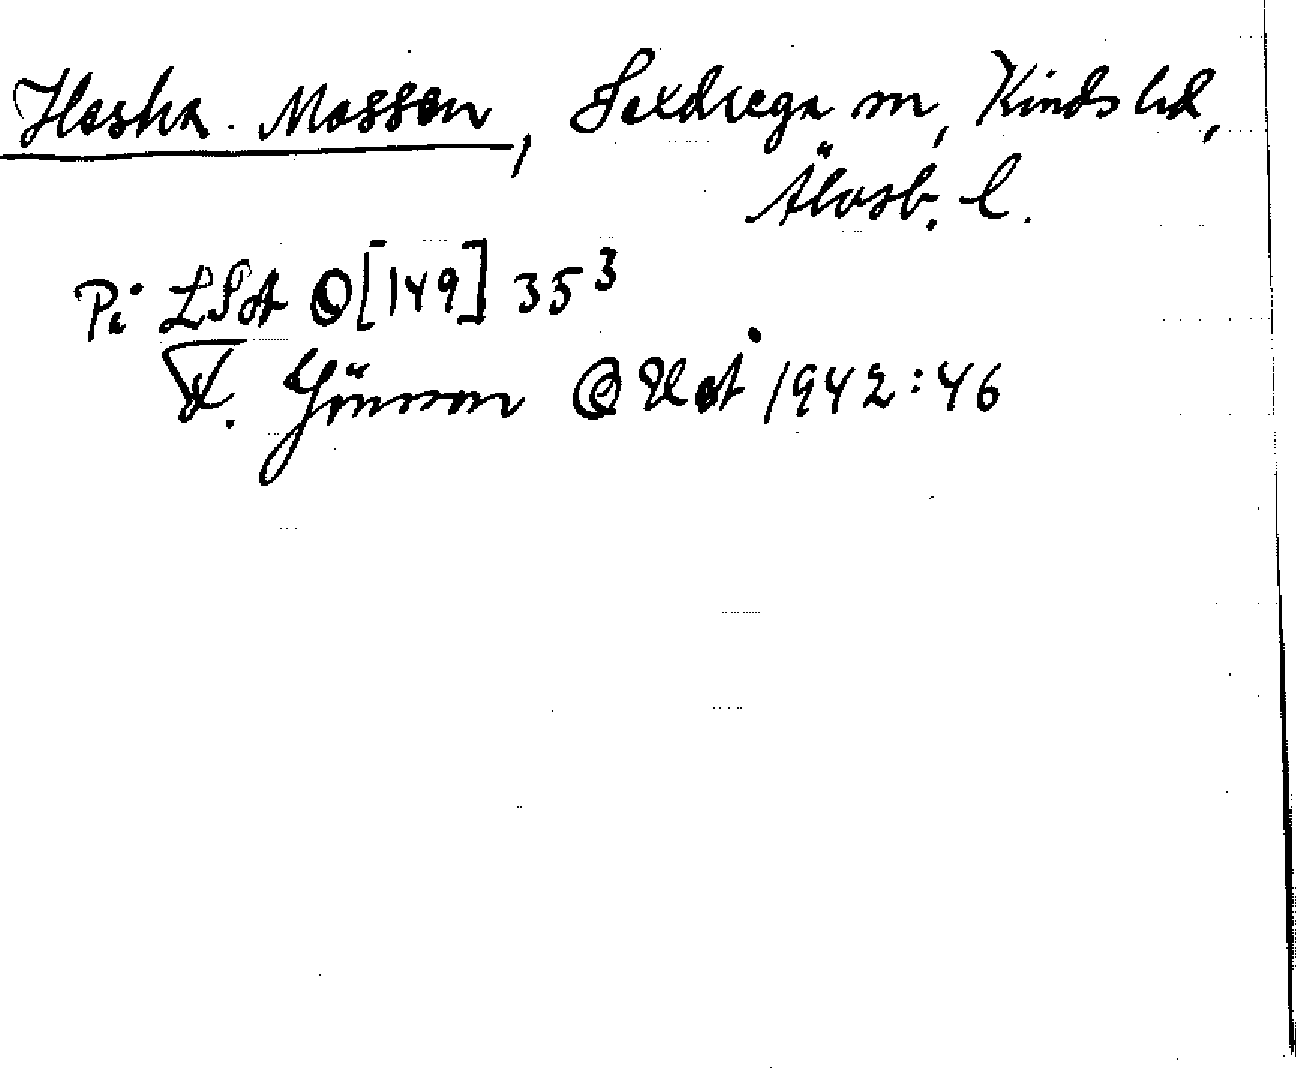 Haska Mossen, Sexdrega sn, Kinds hd,
Älvsb. l.
På LSA [149] 35³
F. Jönsson 1942:46